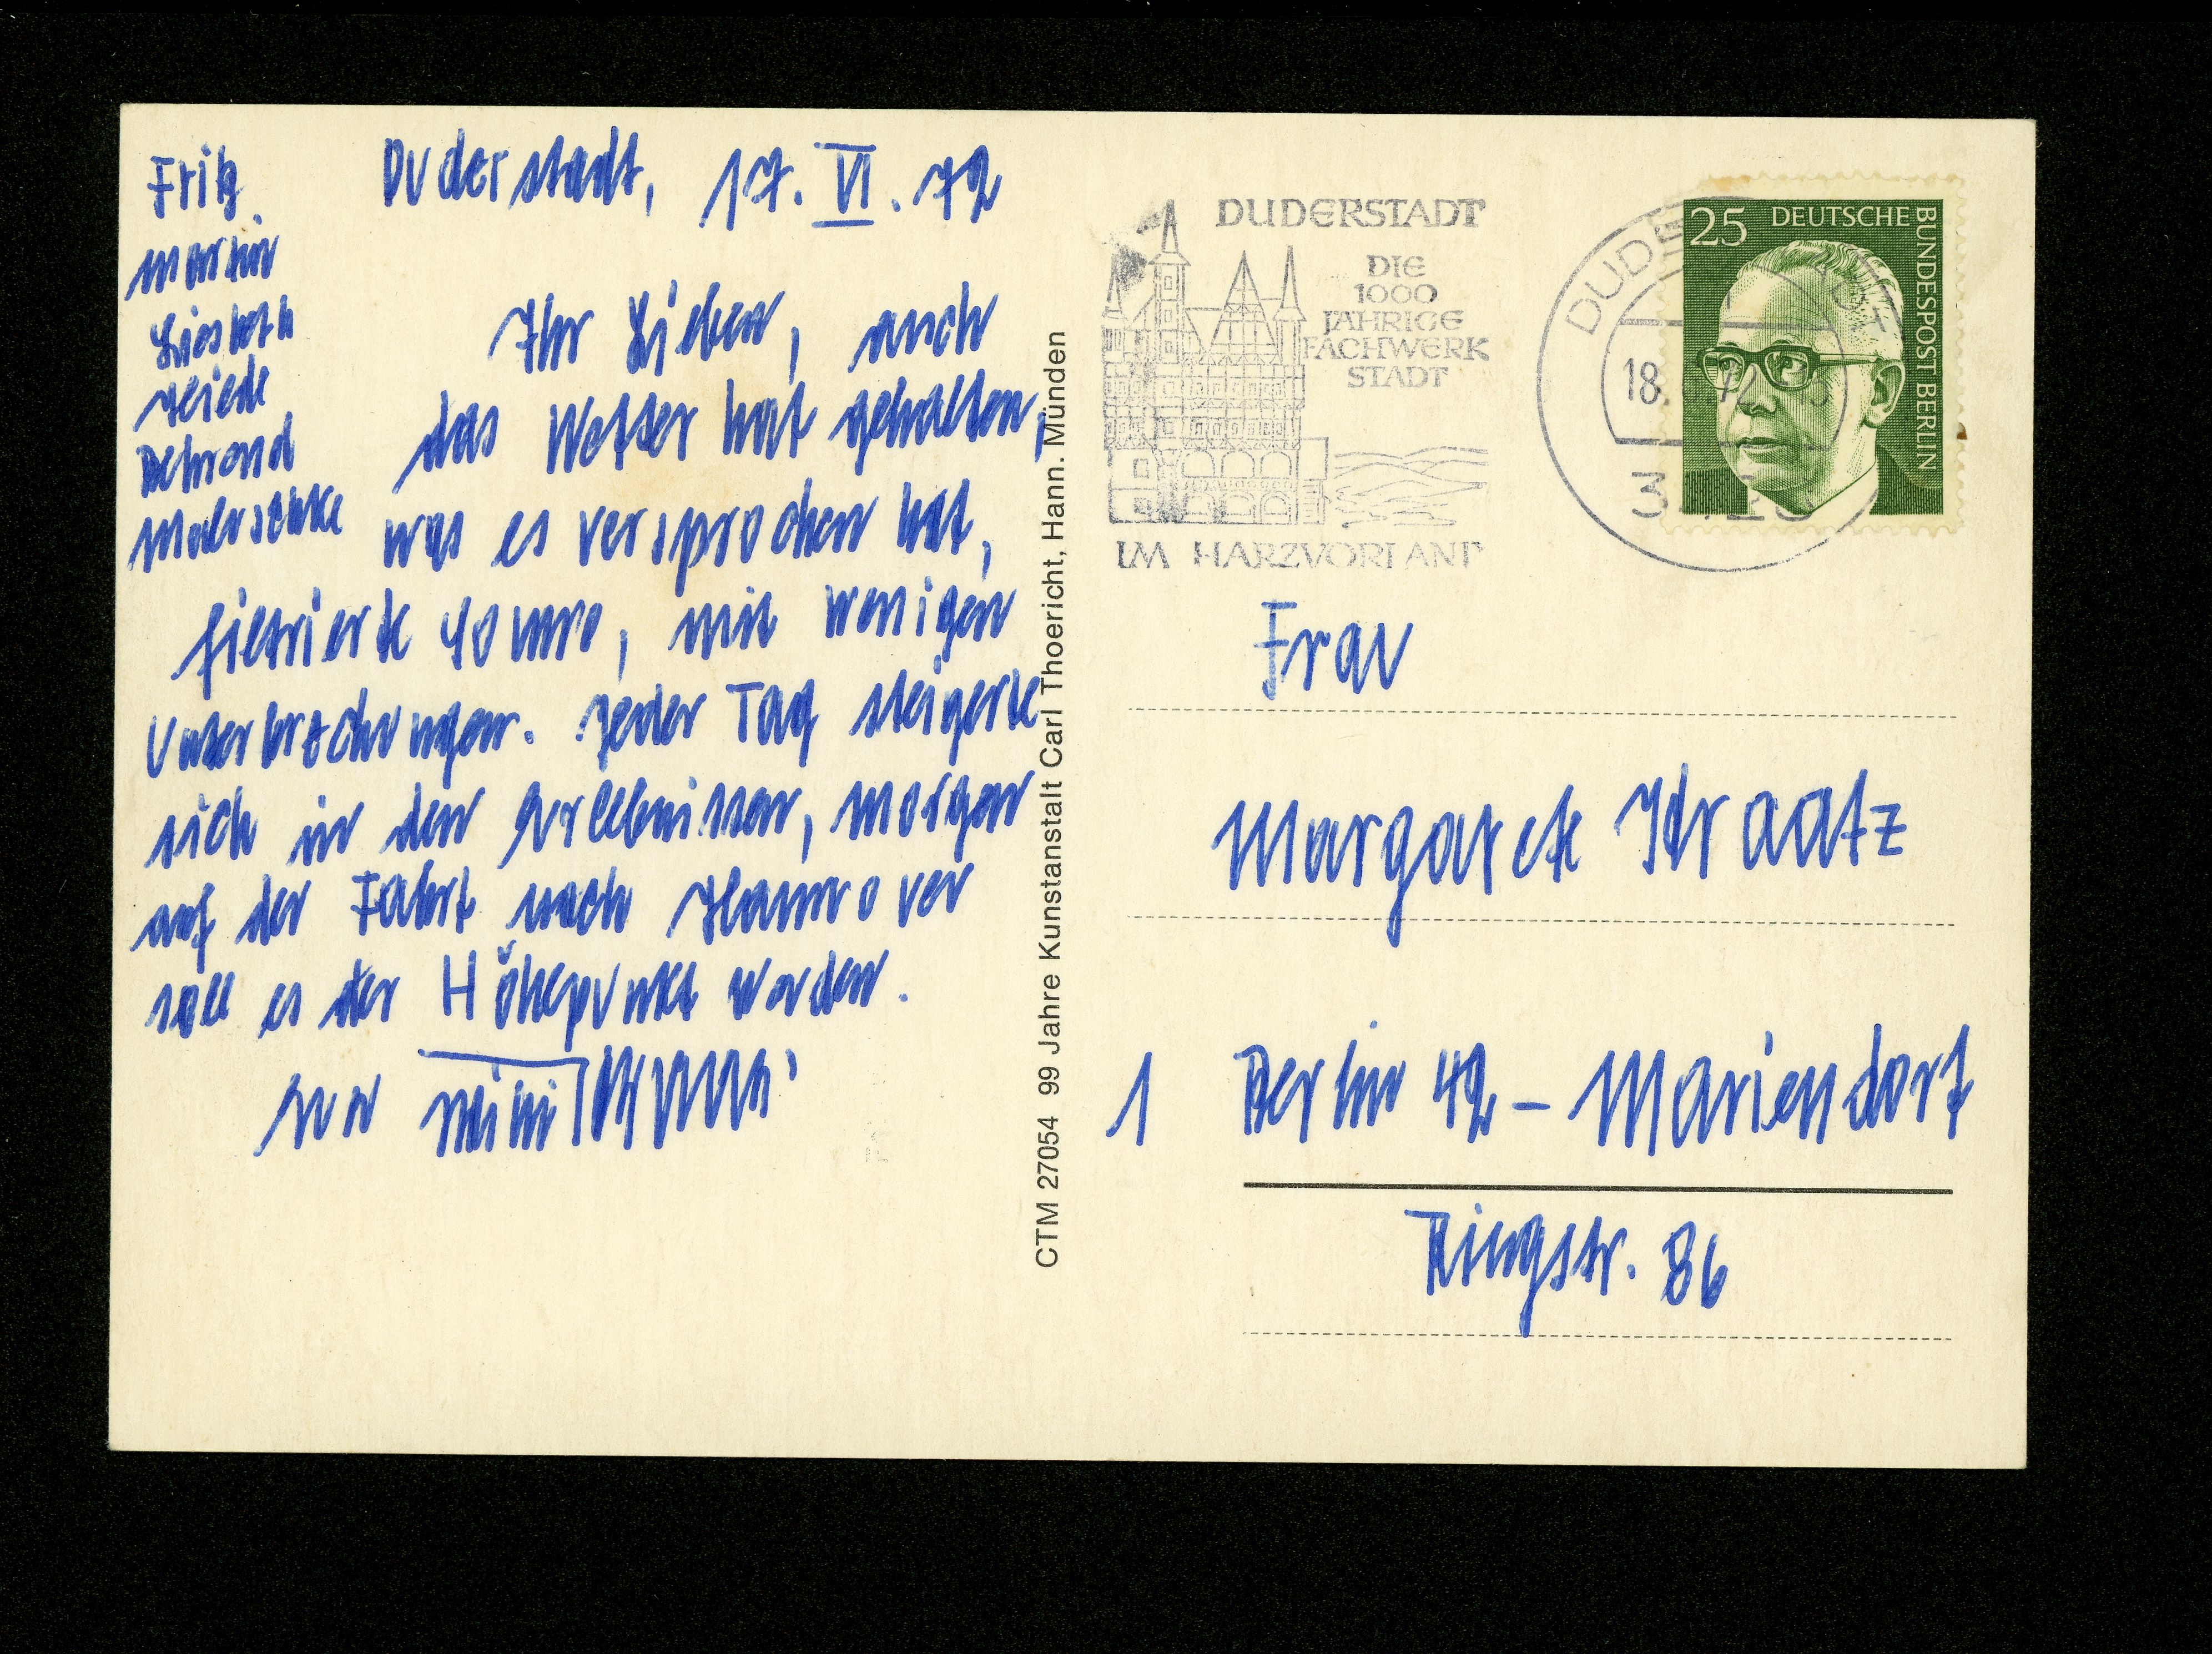 Fritz
Martin
Liesbeth
Heide
Behrend
Duderstadt, 17. VI. 72
Ihr Lieben, auch
das Wetter hat gehalten,
was es versprochen hat,
filtrierte Sonne, mit wenigen
Unterbrechungen. Jeder Tag steigerte
sich in den Erlebnissen, morgen
auf der Fahrt nach Hannover
soll es der Höhepunkt werden.
CTM 27054 99 Jahre Kunstanstalt Carl Thoericht, Hann. Münden
DUDERSTADT
DIE
1000
JÄHRIGE
FACHWERK
STADT
IM HARZVORLAND
DUDERSTADT
18.
25 DEUTSCHE BUNDESPOST BERLIN
Frau
Margarete Kraatz
1 Berlin 42 - Mariendorf
Ringstr. 86